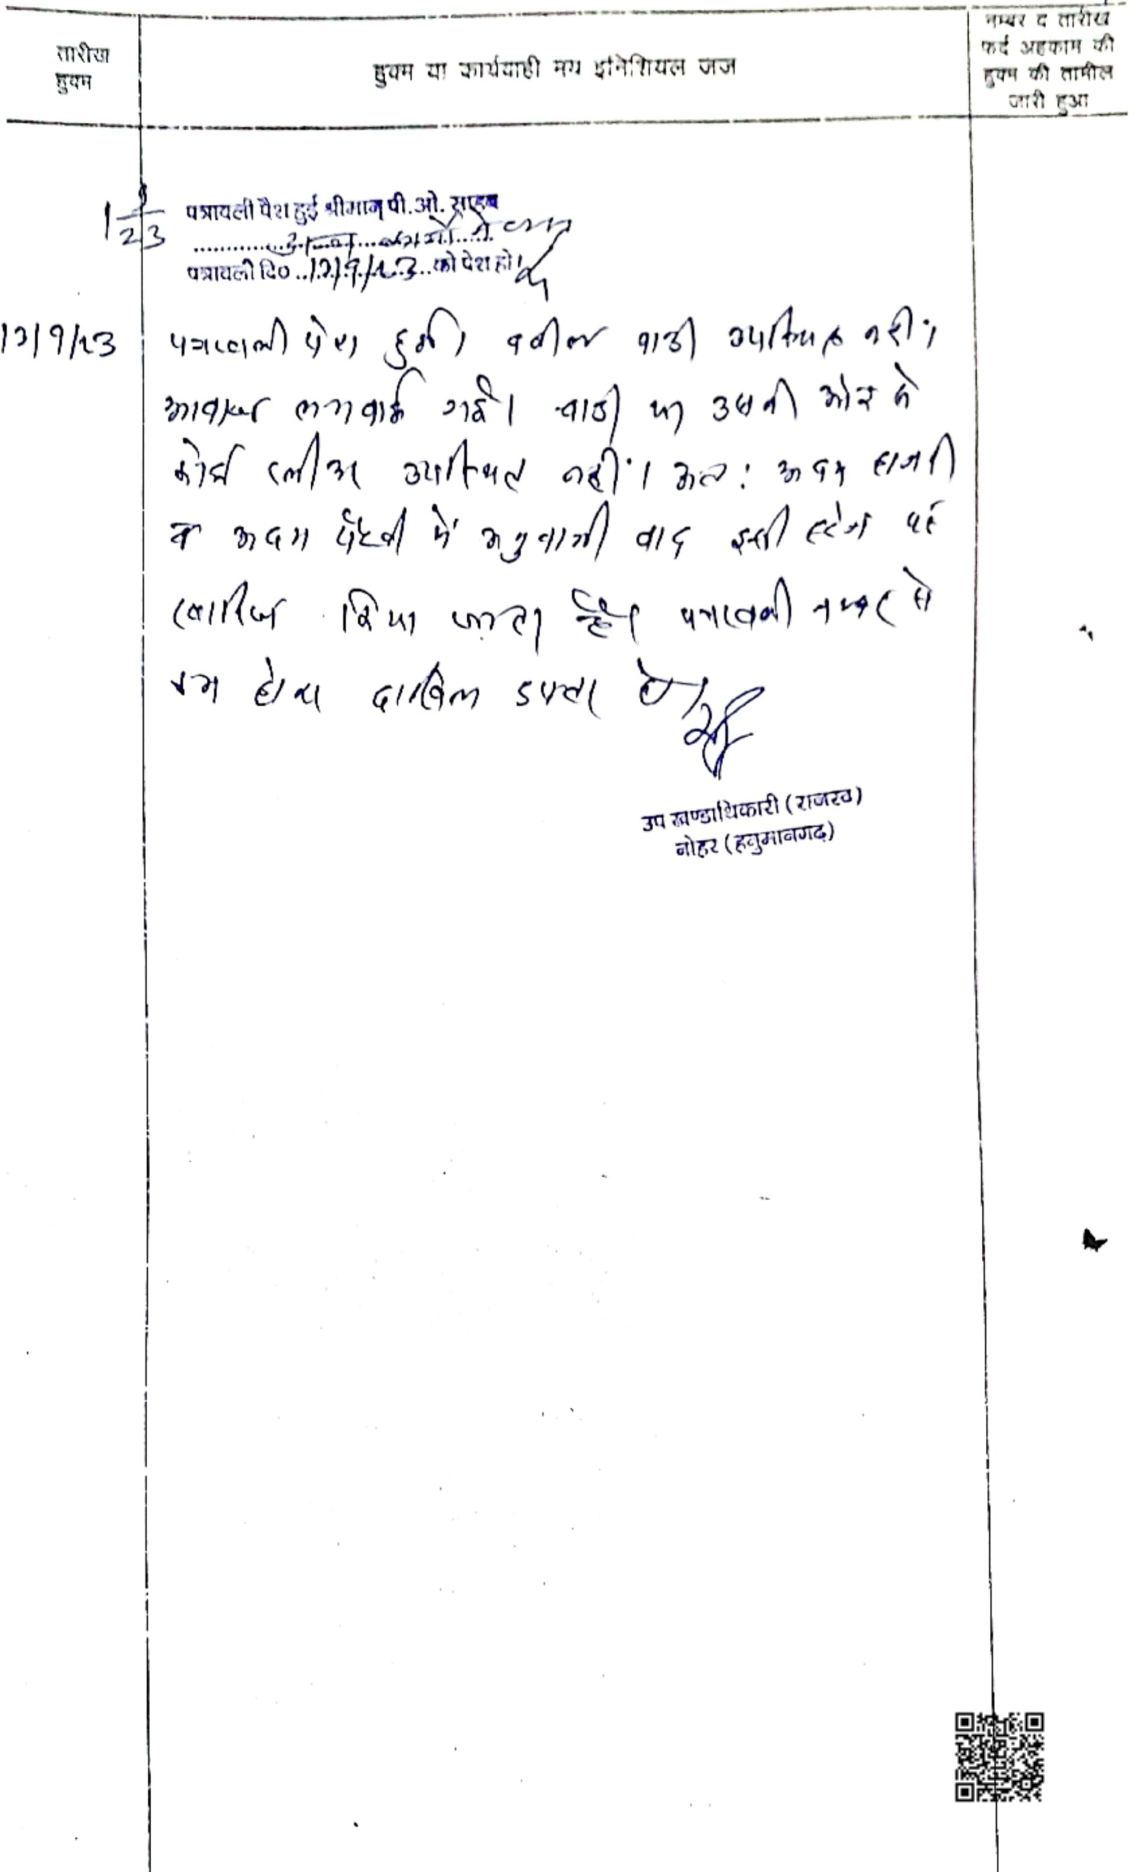 तारीख
हुक्म
हुक्म या कार्यवाही मय इनिशियल जज
नम्बर व तारीख
फर्द अहकाम की
हुक्म की तामील
जारी हुआ
1 9/23
पत्रावली पेश हुई श्रीमान् पी.ओ. साहब
अन्य कार्यों में व्यस्त
पत्रावली दि० 12/9/23 को पेश हो।
12/9/23 पत्रावली पेश हुई। वकील वादी उपस्थित नहीं।
आवाज लगवाई गई। वादी या उसकी ओर से
कोई प्लीडर उपस्थित नहीं। अतः अदम हाजरी
व अदम पैरवी में वाद इसी स्टेज पर
खारिज किया जाता है। पत्रावली नम्बर से
कम होकर दाखिल दफ्तर हो।
उप खण्डाधिकारी (राजस्व)
नोहर (हनुमानगढ़)